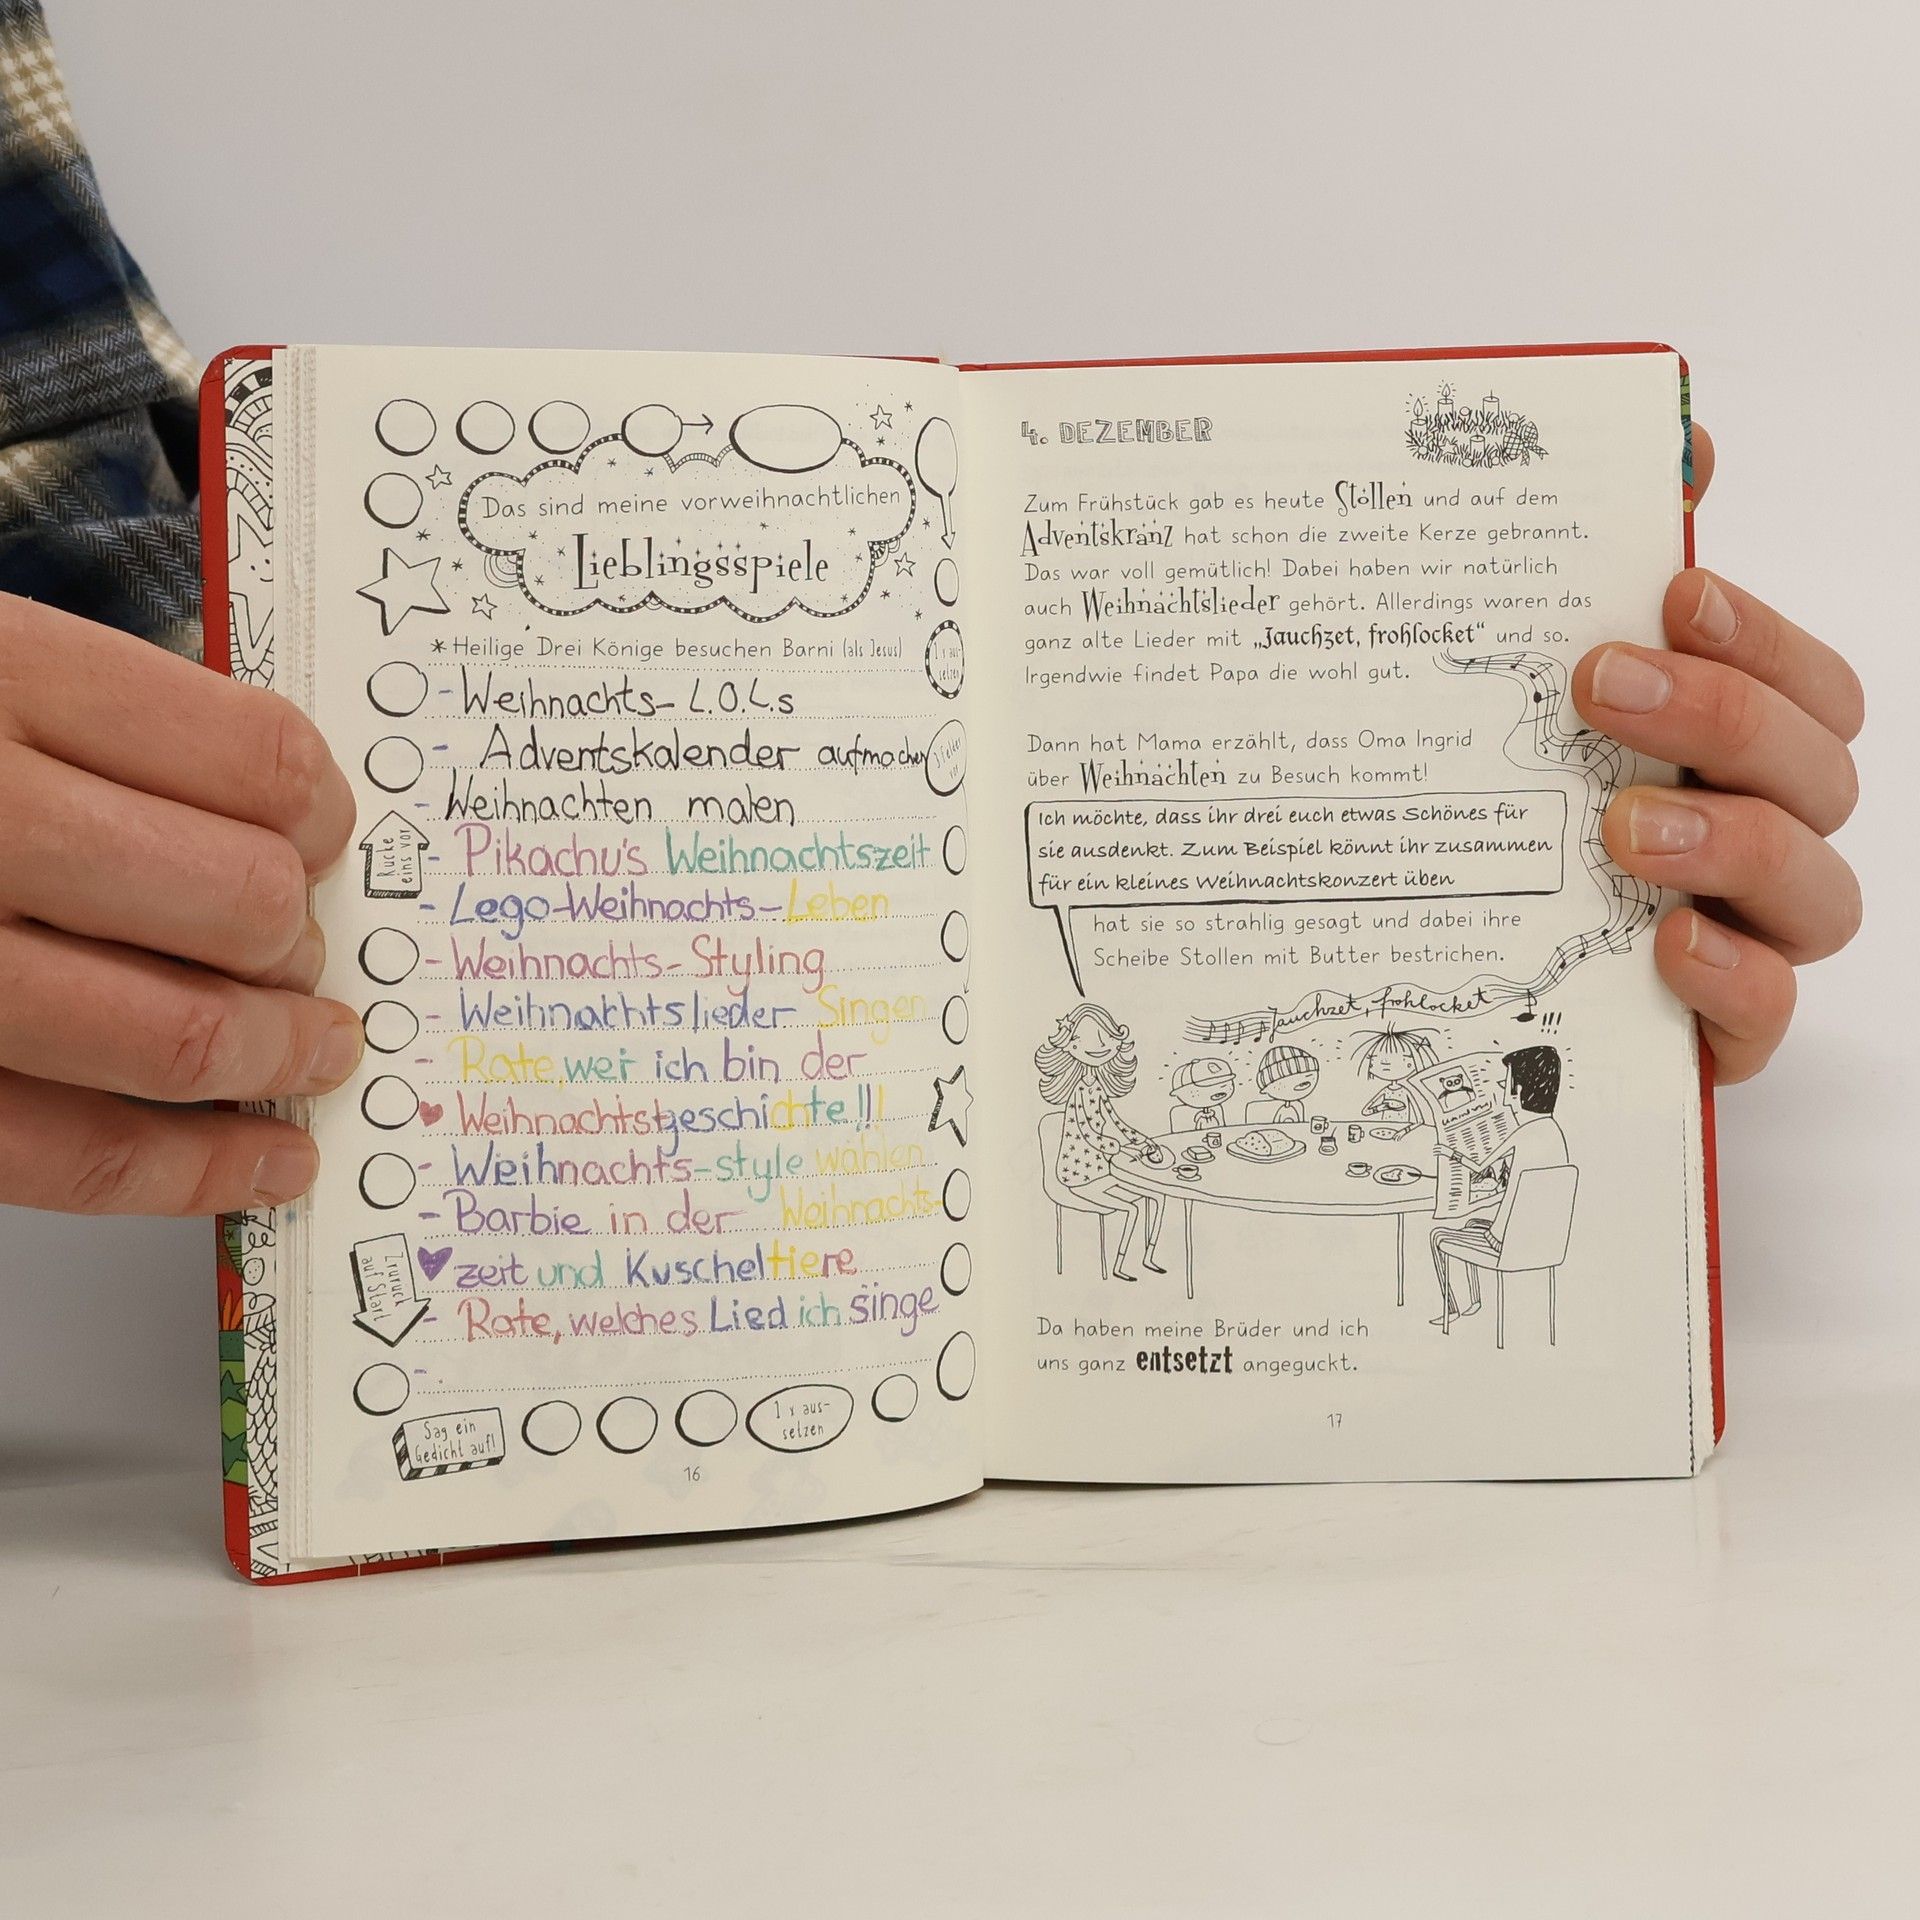 Das sind meine vorweihnachtlichen
Lieblingsspiele
* Heilige Drei Könige besuchen Barni (als Jesus)
1 x aus-
setzen
- Weihnachts- L.O.L.s
- Adventskalender aufmachen
3 Felder
vor
- Weihnachten malen
Rücke
eins vor
- Pikachu's Weihnachtszeit
- Lego-Weihnachts-Leben
- Weihnachts-Styling
- Weihnachtslieder Singen
- Rate, wer ich bin der
Weihnachtsgeschichte!!!
- Weihnachts-style wählen
- Barbie in der Weihnachts-
zeit und Kuscheltiere
Zurück
auf Start
- Rate, welches Lied ich singe
-
Sag ein
Gedicht auf!
1 x aus-
setzen
16
4. DEZEMBER
Zum Frühstück gab es heute Stollen und auf dem
Adventskranz hat schon die zweite Kerze gebrannt.
Das war voll gemütlich! Dabei haben wir natürlich
auch Weihnachtslieder gehört. Allerdings waren das
ganz alte Lieder mit „Jauchzet, frohlocket“ und so.
Irgendwie findet Papa die wohl gut.
Dann hat Mama erzählt, dass Oma Ingrid
über Weihnachten zu Besuch kommt!
Ich möchte, dass ihr drei euch etwas Schönes für
sie ausdenkt. Zum Beispiel könnt ihr zusammen
für ein kleines Weihnachtskonzert üben
hat sie so strahlig gesagt und dabei ihre
Scheibe Stollen mit Butter bestrichen.
Jauchzet, frohlocket
!!!
Da haben meine Brüder und ich
uns ganz entsetzt angeguckt.
17